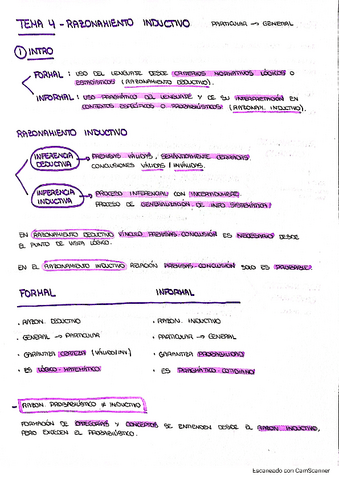 TEMA 4 - RAZONAMIENTO INDUCTIVO PARTICULAR → GENERAL
① INTRO
FORMAL: USO DEL LENGUAJE DESDE CRITERIOS NORMATIVOS LÓGICOS O
ESTADÍSTICOS (RAZONAMIENTO DEDUCTIVO).
INFORMAL: USO PRAGMÁTICO DEL LENGUAJE Y DE SU INTERPRETACIÓN EN
CONTEXTOS ESPECÍFICOS O PROBABILÍSTICOS (RAZONAM. INDUCTIVO).
RAZONAMIENTO INDUCTIVO
INFERENCIA DEDUCTIVA → PREMISAS VÁLIDAS, SEMÁNTICAMENTE CERRADAS
CONCLUSIONES VÁLIDAS / INVÁLIDAS.
INFERENCIA INDUCTIVA → PROCESO INFERENCIAL CON INCERTIDUMBRE
PROCESO DE GENERALIZACIÓN DE INFO SISTEMÁTICA
EN RAZONAMIENTO DEDUCTIVO VÍNCULO PREMISAS-CONCLUSIÓN ES NECESARIO DESDE
EL PUNTO DE VISTA LÓGICO.
EN EL RAZONAMIENTO INDUCTIVO RELACIÓN PREMISAS-CONCLUSIÓN SOLO ES PROBABLE.
FORMAL INFORMAL
· RAZON. DEDUCTIVO · RAZON. INDUCTIVO
· GENERAL → PARTICULAR · PARTICULAR → GENERAL
· GARANTIZA CERTEZA (VÁLIDO/INV) · GARANTIZA PROBABILIDAD
· ES LÓGICO-MATEMÁTICO · ES PRAGMÁTICO COTIDIANO
- RAZON. PROBABILÍSTICO ≠ INDUCTIVO
FORMACIÓN DE CATEGORÍAS Y CONCEPTOS SE ENTIENDEN DESDE EL RAZON INDUCTIVO,
PERO EXCEDEN EL PROBABILÍSTICO.
Escaneado con CamScanner